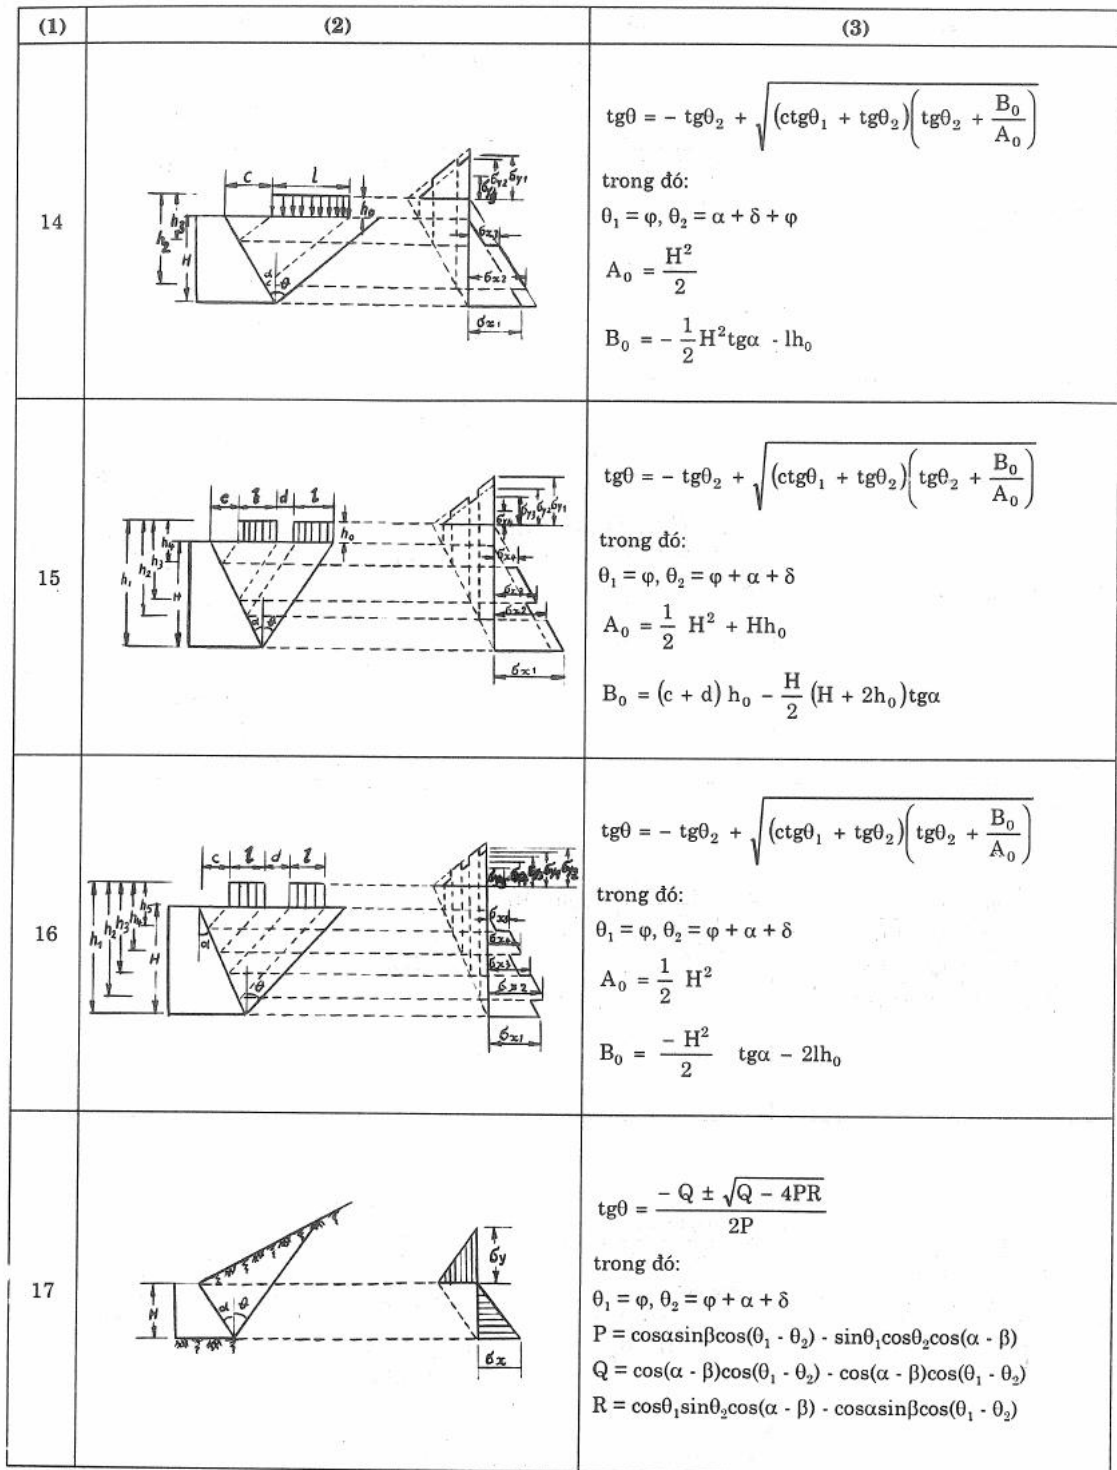 (1) (2) (3)
14
c l
h₃ h₂ H h₀
α θ
σy3 σy2 σy1
σx3
σx2
σx1
tgθ = - tgθ₂ + √((ctgθ₁ + tgθ₂)(tgθ₂ + B₀/A₀))
trong đó:
θ₁ = φ, θ₂ = α + δ + φ
A₀ = H²/2
B₀ = - 1/2 H²tgα - lh₀
15
l d l
h₁ h₂ h₃ h₄ H h₀
σy4 σy3 σy2 σy1
σx4
σx3
σx2
σx1
tgθ = - tgθ₂ + √((ctgθ₁ + tgθ₂)(tgθ₂ + B₀/A₀))
trong đó:
θ₁ = φ, θ₂ = φ + α + δ
A₀ = 1/2 H² + Hh₀
B₀ = (c + d) h₀ - H/2 (H + 2h₀)tgα
16
c l d l
h₁ h₂ h₃ h₄ h₅ H
α
θ
σx4
σx3
σx2
σx1
tgθ = - tgθ₂ + √((ctgθ₁ + tgθ₂)(tgθ₂ + B₀/A₀))
trong đó:
θ₁ = φ, θ₂ = φ + α + δ
A₀ = 1/2 H²
B₀ = - H²/2 tgα - 2lh₀
17
H
α θ
σy
σx
tgθ = (- Q ± √(Q - 4PR))/2P
trong đó:
θ₁ = φ, θ₂ = φ + α + δ
P = cosαsinβcos(θ₁ - θ₂) - sinθ₁cosθ₂cos(α - β)
Q = cos(α - β)cos(θ₁ - θ₂) - cos(α - β)cos(θ₁ - θ₂)
R = cosθ₁sinθ₂cos(α - β) - cosαsinβcos(θ₁ - θ₂)